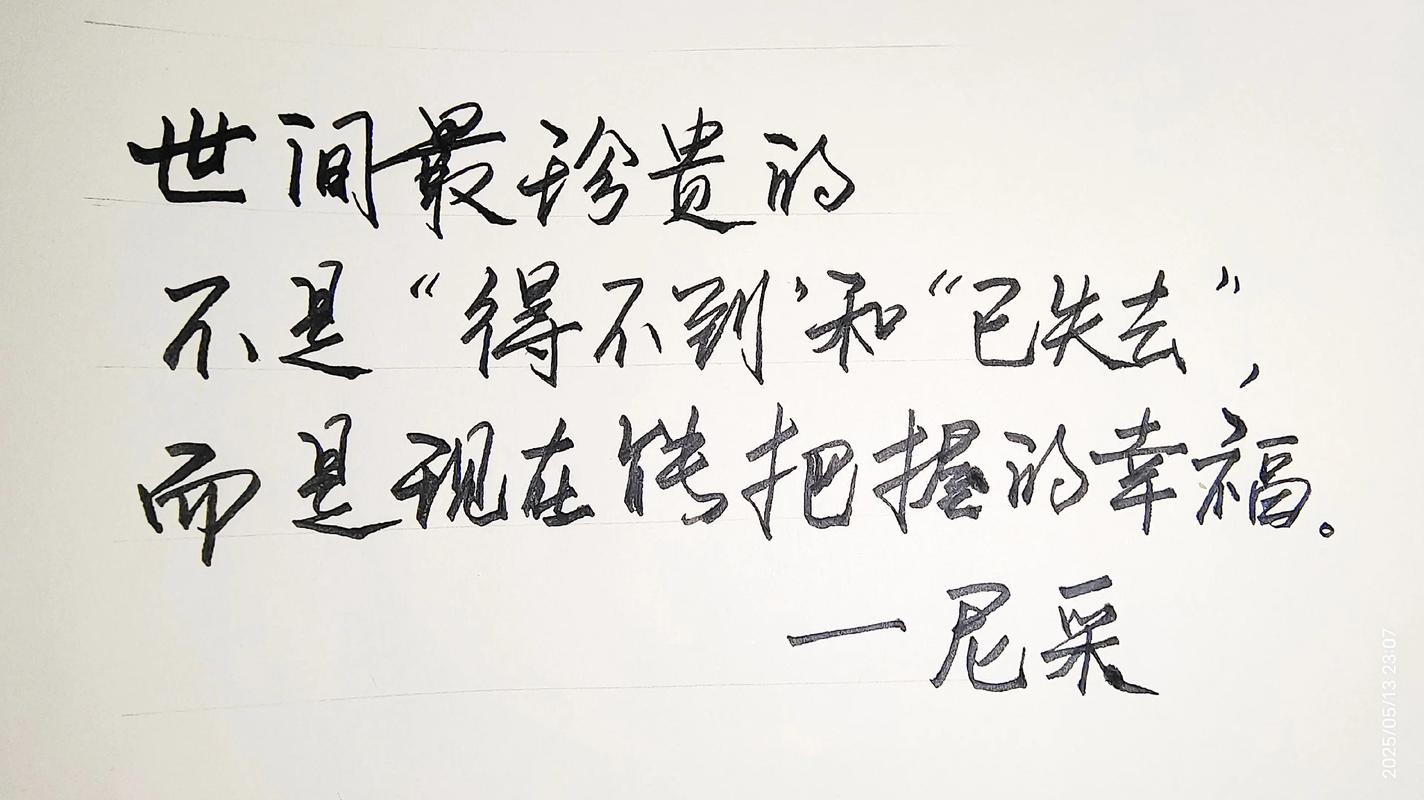 世间最珍贵的
不是“得不到’和“已失去”，
而是现在能把握的幸福。
—尼采
2025/05/13 23:07